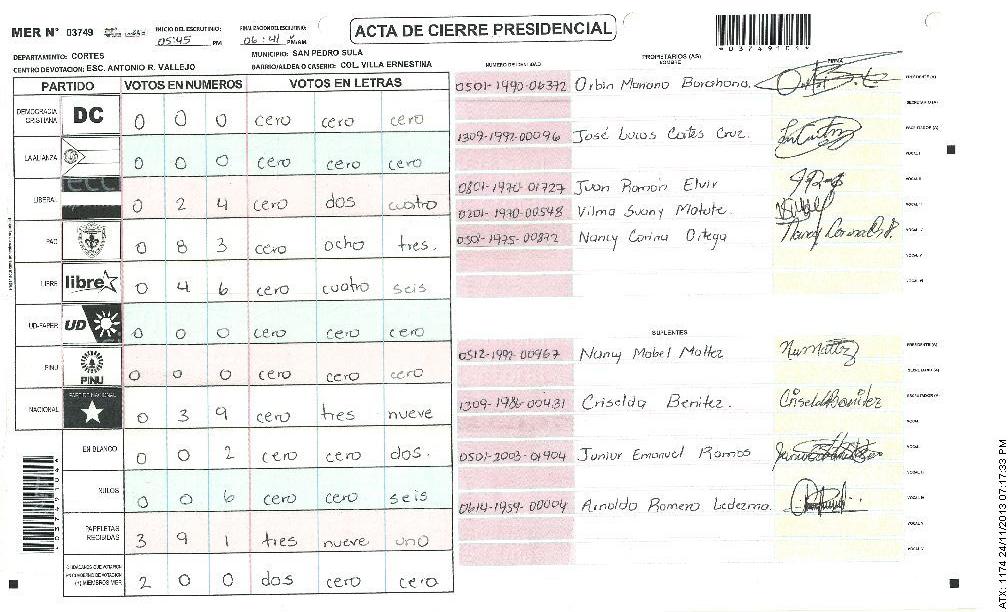 ACTA DE CIERRE PRESIDENCIAL
MER N° 03749
INICIO DEL ESCRUTINIO: 05:45 PM
FINALIZACION DEL ESCRUTINIO: 06:41 PM/AM
DEPARTAMENTO: CORTES
MUNICIPIO: SAN PEDRO SULA
CENTRO DE VOTACION: ESC. ANTONIO R. VALLEJO
BARRIO/ALDEA O CASERIO: COL. VILLA ERNESTINA
PARTIDO VOTOS EN NUMEROS VOTOS EN LETRAS
DEMOCRACIA CRISTIANA DC 0 0 0 cero cero cero
LA ALIANZA 0 0 0 cero cero cero
LIBERAL 0 2 4 cero dos cuatro
PAC 0 8 3 cero ocho tres.
LIBRE libre 0 4 6 cero cuatro seis
UD-FAPER UD 0 0 0 cero cero cero
PINU PINU 0 0 0 cero cero cero
NACIONAL PARTIDO NACIONAL 0 3 9 cero tres nueve
EN BLANCO 0 0 2 cero cero dos.
NULOS 0 0 6 cero cero seis
PAPELETAS RECIBIDAS 3 9 1 tres nueve uno
CIUDADANOS QUE VOTARON EN CUADERNO DE VOTACION (+) MIEMBROS MER 2 0 0 dos cero cero
NUMERO DE IDENTIDAD PROPIETARIOS (AS) NOMBRE FIRMA
0501-1990-06372 Orbin Mariano Barahona. PRESIDENTE (A)
SECRETARIO (A)
1309-1992-00096 José Lucas Cortes Cruz. ESCRUTADOR (A)
VOCAL I
0801-1970-01727 Juan Ramón Elvir VOCAL II
0201-1970-00548 Vilma Suany Matute.
0501-1975-00872 Nancy Corina Ortega
VOCAL V
SUPLENTES
0512-1992-00967 Nancy Mabel Mattez PRESIDENTE (A)
SECRETARIO (A)
1309-1986-00431 Criselda Benitez. Criselda Benitez
0501-2003-01904 Junior Emanuel Ramos
0614-1959-00004 Arnoldo Romero Ledezma.
ATX: 1174 24/11/2013 07:17:33 PM